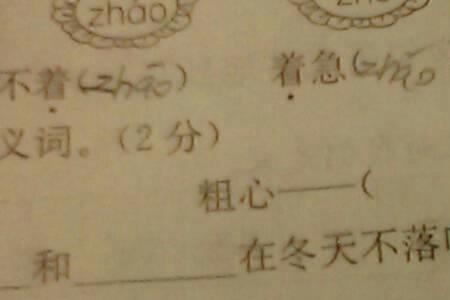 zháo
不着(zhāo)
着急(zhāo
义词。(2分)
粗心——(
和______在冬天不落